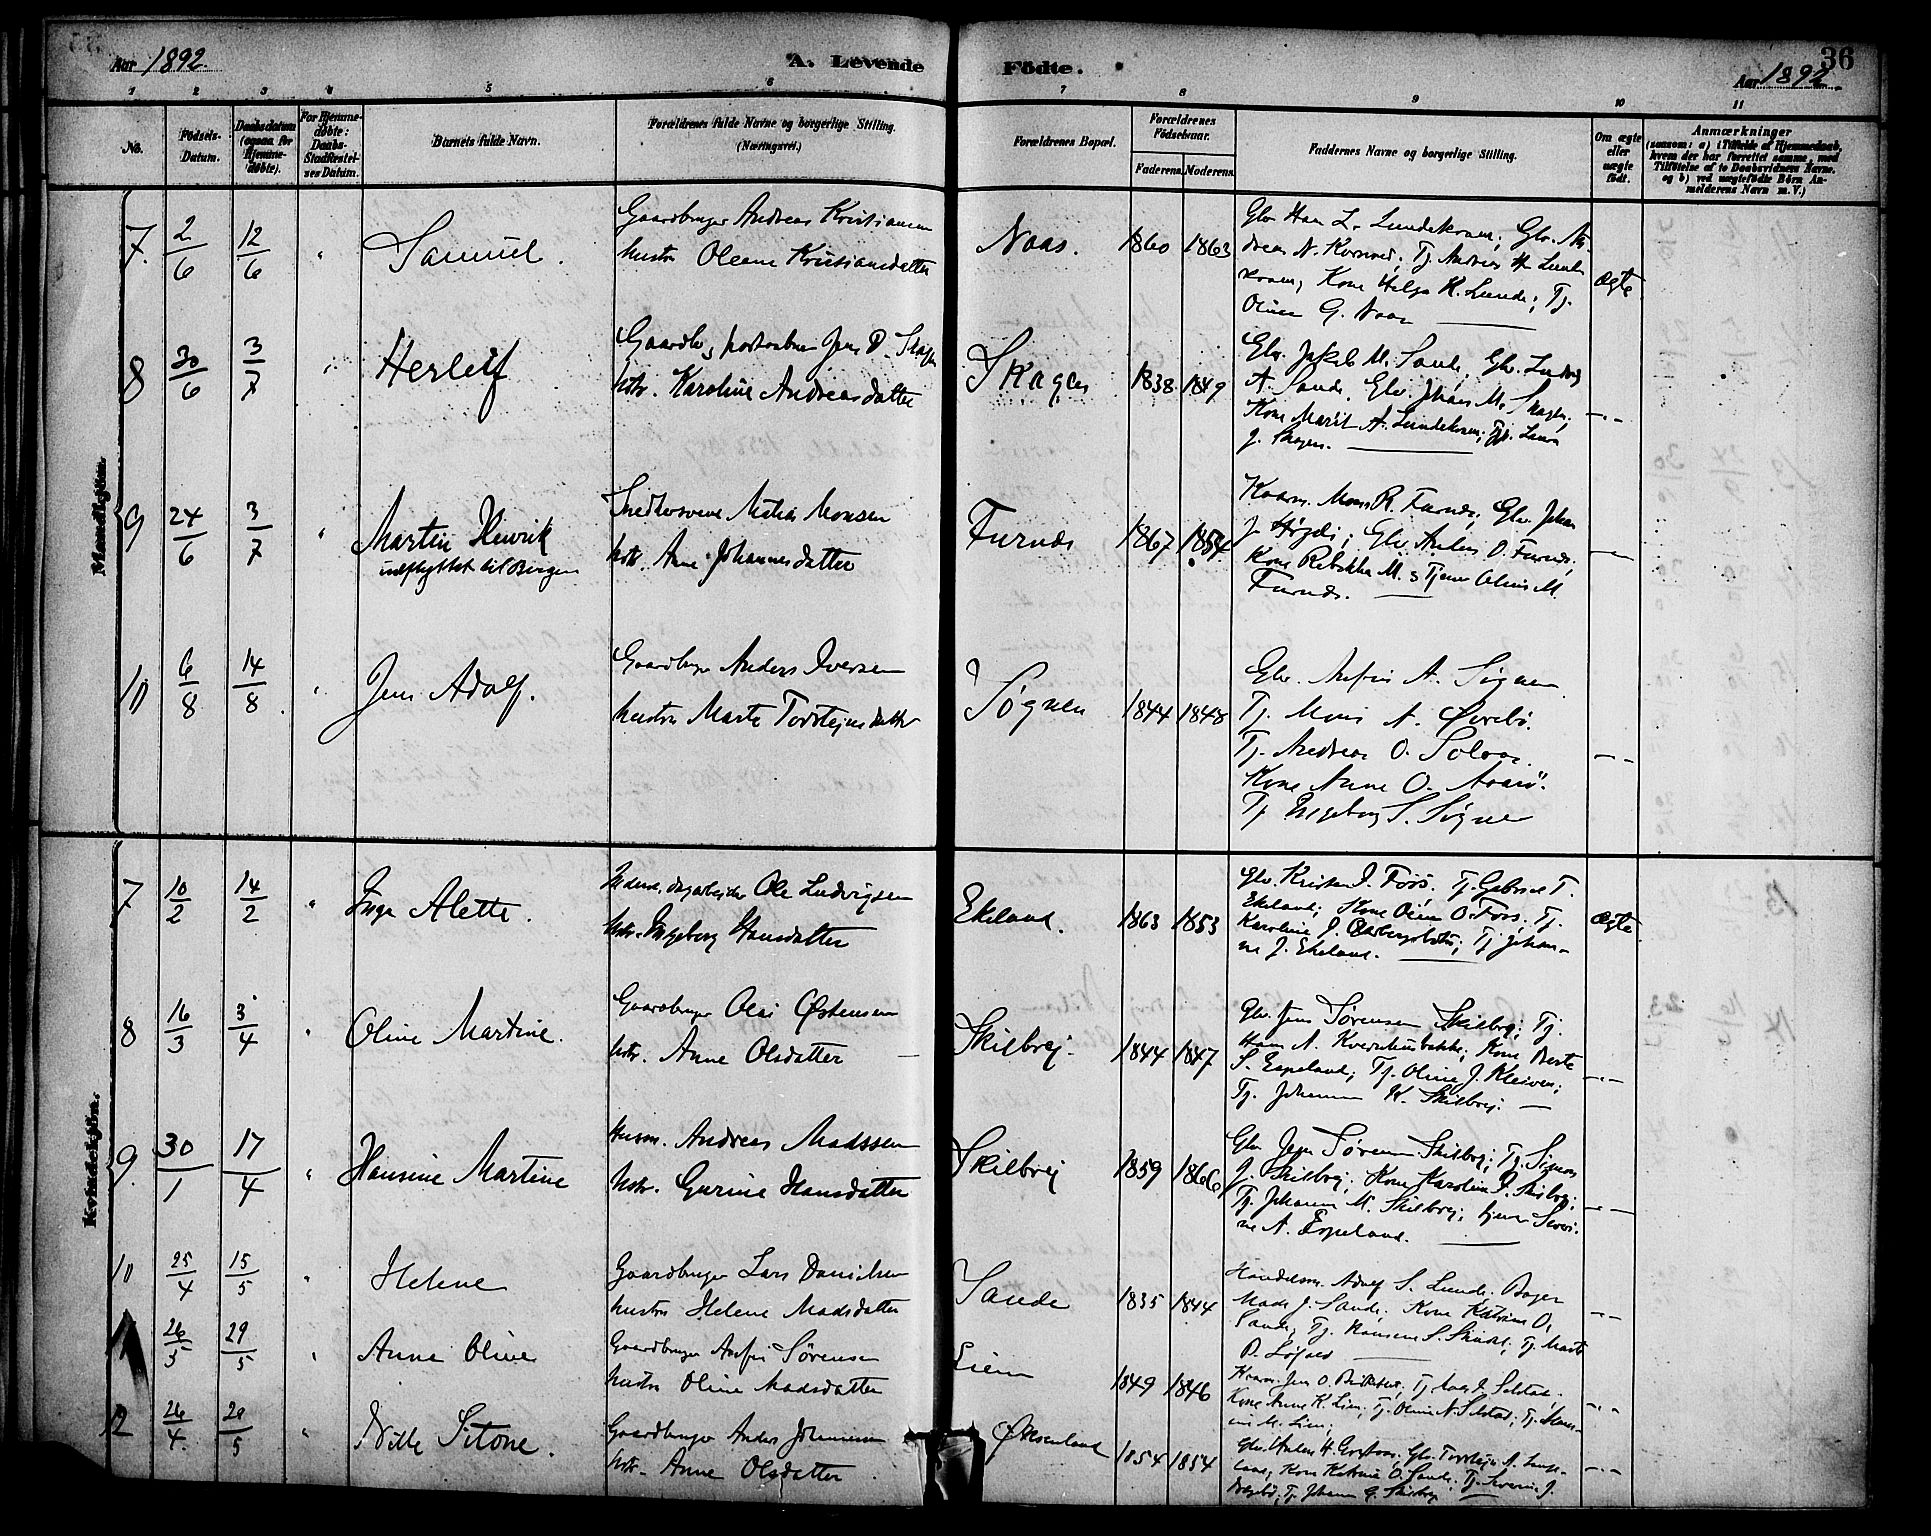 Aar 1892.
A. Levende Fødte.
36
Aar 1892.
1 2 3 4 5 6 7 8 9 10 11
No.
Fødsels-Datum.
Daabsdatum (ogsaa for Hjemme-døbte).
For Hjemme-døbte: Daabs-Stadfæstel-ses Datum.
Barnets fulde Navn.
Forældrenes fulde Navne og borgerlige Stilling. (Næringsvei.)
Forældrenes Bopæl.
Forældrenes Fødselsaar.
Faderens. Moderens.
Faddernes Navne og borgerlige Stilling.
Om ægte eller uægte født.
Anmærkninger
(saasom: a) i Tilfælde af Hjemmedaab, hvem der har forrettet samme, med Tilføielse af to Daabsvidners Navne. og b) ved uægtefødte Børn An-melderens Navn m. V.)
Mandkjøn.
7. 2/6 12/6 " Samuel.
Gaardbruger Andreas Kristiansen
hustru Oleane Kristiansdatter
Naas. 1860 1863
Gbr. Hans L. Lundekvam; Gbr. An-
dreas N. Kvernevi; Tj. Andreas H. Lunde-
kvam; Kone Helga K. Lunde; Tj.
Oline G. Naas
Ægte
8 30/6 3/7 " Herleif
Gaardb. & postaabner Jens D. Skagen
hstr. Karoline Andreasdatter
Skagen 1838 1849
Gbr. Jakob M. Sande, Gbr. Ludvig
A. Sande, Gbr. Johan M. Skagen,
Kone Marit A. Lundekvam; Laura
J. Skagen.
9 24/6 3/7 " Martin Henrik
udflyttet til Bergen
Snedkersvend Mathias Monsen
hstr. Anne Johannesdatter
Furnes 1867 1854
Kaarm. Mons R. Furnes; Gbr. Johan
J. Høgdi; Gbr. Anders O. Furnes;
Kone Rebekka M. & Tjener Oline M.
Furnes.
10 6/8 14/8 " Jens Adolf.
Gaardbruger Anders Iversen
hustru Marte Torsteinsdatter
Sögnen 1844 1848
Gbr. Anfin A. Sögnen
Tj. Mons A. Övrebö.
Tj. Andreas O. Solvor.
Kone Anne O. Aarö.
Tj. Ingeborg S. Sögnen
Kvindekjøn.
7 10/2 14/2 " Inga Alette.
dagarbeider Ole Ludvigsen
hstr. Ingeborg Hansdatter
Ekeland. 1863 1853
Gbr. Kristen J. Förs, Tj. Gabriel T.
Ekeland; Kone Oline O. Förs; Tj.
Karoline J. Tj. Johan-
ne J. Ekeland.
Ægte
8 16/3 3/4 " Oline Martine.
Gaardbruger Olai Østensen
hstr. Anne Olsdatter
Skilbrej. 1844 1847
Gbr. Jens Sörensen Skilbrej; Tj.
Hans A. Kvernhusbakke; Kone Berte
S. Espeland; Tj. Oline J. Kleiven;
Tj. Johanne K. Skilbrej.
9. 30/1 17/4 " Hansine Martine
Husm. Andreas Madssen
hstr. Gurine Hansdatter
Skilbrej 1859 1866
Gbr. Jens Sörensen Skilbrej; Tj. Simon
J. Skilbrej; Kone Karoline J. Skilbrej;
Tj. Johanne M. Skilbrej; tjener Severi-
ne A. Espeland.
10 25/4 15/5 " Helene
Gaardbruger Lars Danielsen
hustru Helene Madsdatter
Sande 1835 1844
Handelsm. Adolf S. Lunde; Bager
Mads J. Sande; Kone Katrine O.
Sande; Tj. Hansine S. Tj. Marte
D.
11 26/3 29/5 " Anne Oline
Gaardbruger Anfin Sörensen
hustru Oline Madsdatter
Lien 1849 1846
Kaarm. Jens O. Tj. Selstad.
Kone Anne K. Lien; Tj. Oline N. Selstad; Tj.
M. Lien;
12 26/4 29/5 " Nille Sitone.
Gaardbruger Anders Johannesen
hstr. Anne Olsdatter
Øksenland 1854 1854
Gbr. Anders H. Gbr. Torstein A.
land; Kone Katrine O. Sande; Tj. Severine J.
Tj. Johanne G. Skilbrej